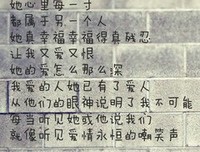 她心里每一寸
都属于另一个人
她真幸福幸福得真残忍
让我又爱又恨
她的爱怎么那么深
我爱的人她已有了爱人
从他们的眼神说明了我不可能
每当听见她或他说我们
就像听见爱情永恒的嘲笑声